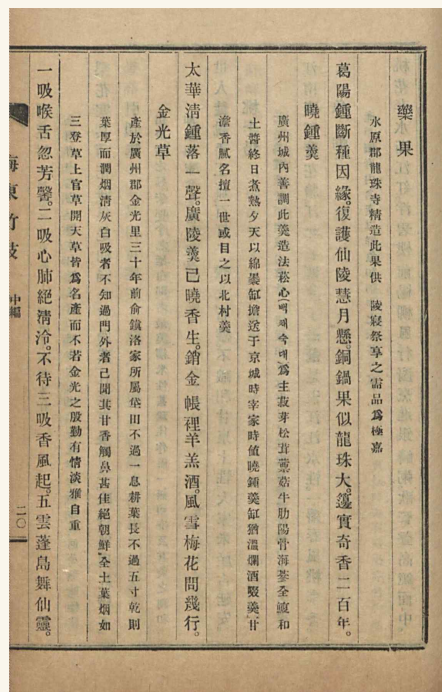 藥果
水原郡龍珠寺精造此果供 陵寢祭享之需品爲極嘉
葛陽鍾斷種因緣。復護仙陵慧月懸。銅鍋果似龍珠大。籩實奇香二百年。
曉鍾羹
廣州城內善調此羹造法菘心배쌔속대爲主菽芽松茸蔈菇牛肋陽骨海蔘全鰒和
土醬終日煮熟夕天以綿裹缸擔送于京城時宰家時値曉鍾羹缸猶溫爛酒啜羹甘
澹香膩名擅一世或目之以北村羹
太華淸鍾落一聲。廣陵羹已曉香生。銷金帳裡羊羔酒。風雪梅花問幾行。
金光草
產於廣州郡金光里三十年前俞鎭洛家所屬垈田不過一息耕葉長不過五寸乾則
葉厚而潤烟淸灰白吸者不知過門外者已聞其甘香觸鼻甚佳絕朝鮮全土葉烟如
三登草上官草開天草皆爲名產而不若金光之慇勤有情淡雅自重
一吸喉舌忽芳馨。二吸心肺絕淸泠。不待三吸香風起。五雲蓬島舞仙靈。
海東竹枝 中編 二〇